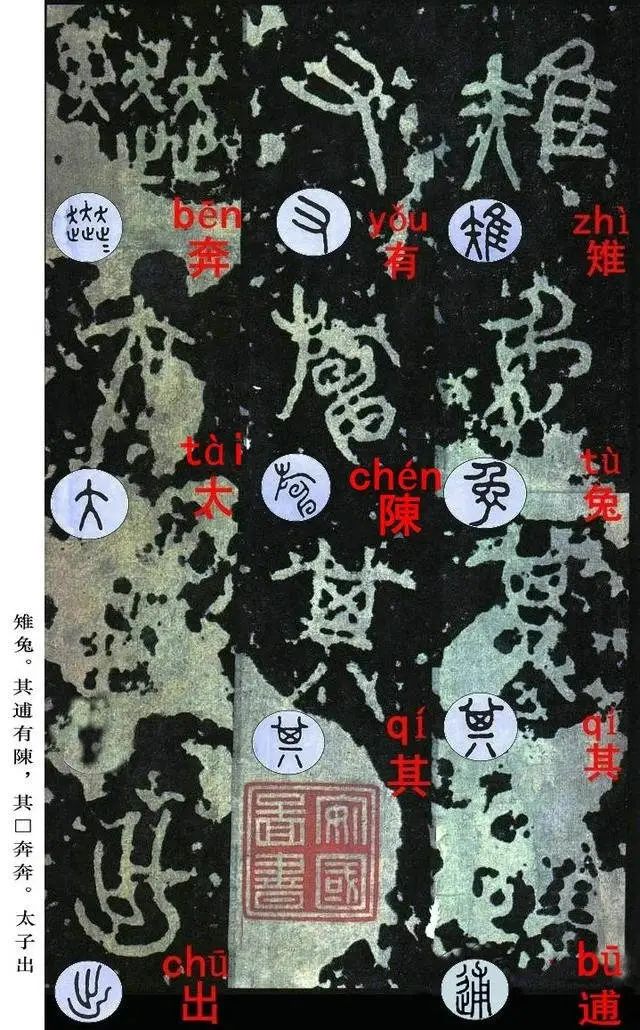 zhì
雉
tù
兔
qí
其
bū
逋
yǒu
有
chén
陳
qí
其
bēn
奔
tài
太
chū
出
雉兔。其逋有陳，其□奔奔。太子出